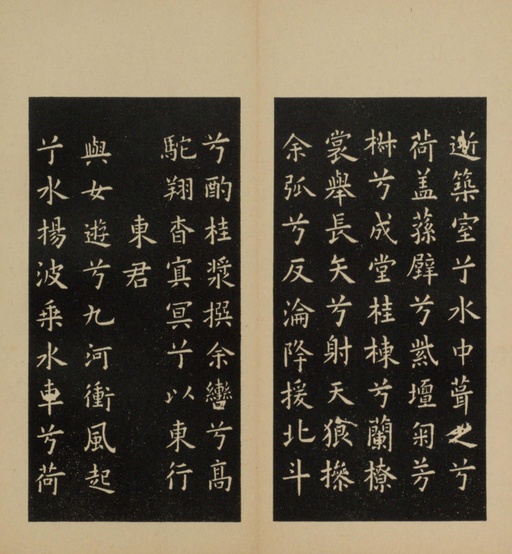 逝築室兮水中葺之兮
荷盖蓀壁兮紫壇匊芳
椒兮成堂桂棟兮蘭橑
裳舉長矢兮射天狼操
余弧兮反淪降援北斗
兮酌桂漿撰余轡兮高
駝翔杳冥冥兮以東行
東君
與女遊兮九河衝風起
兮水揚波乘水車兮荷